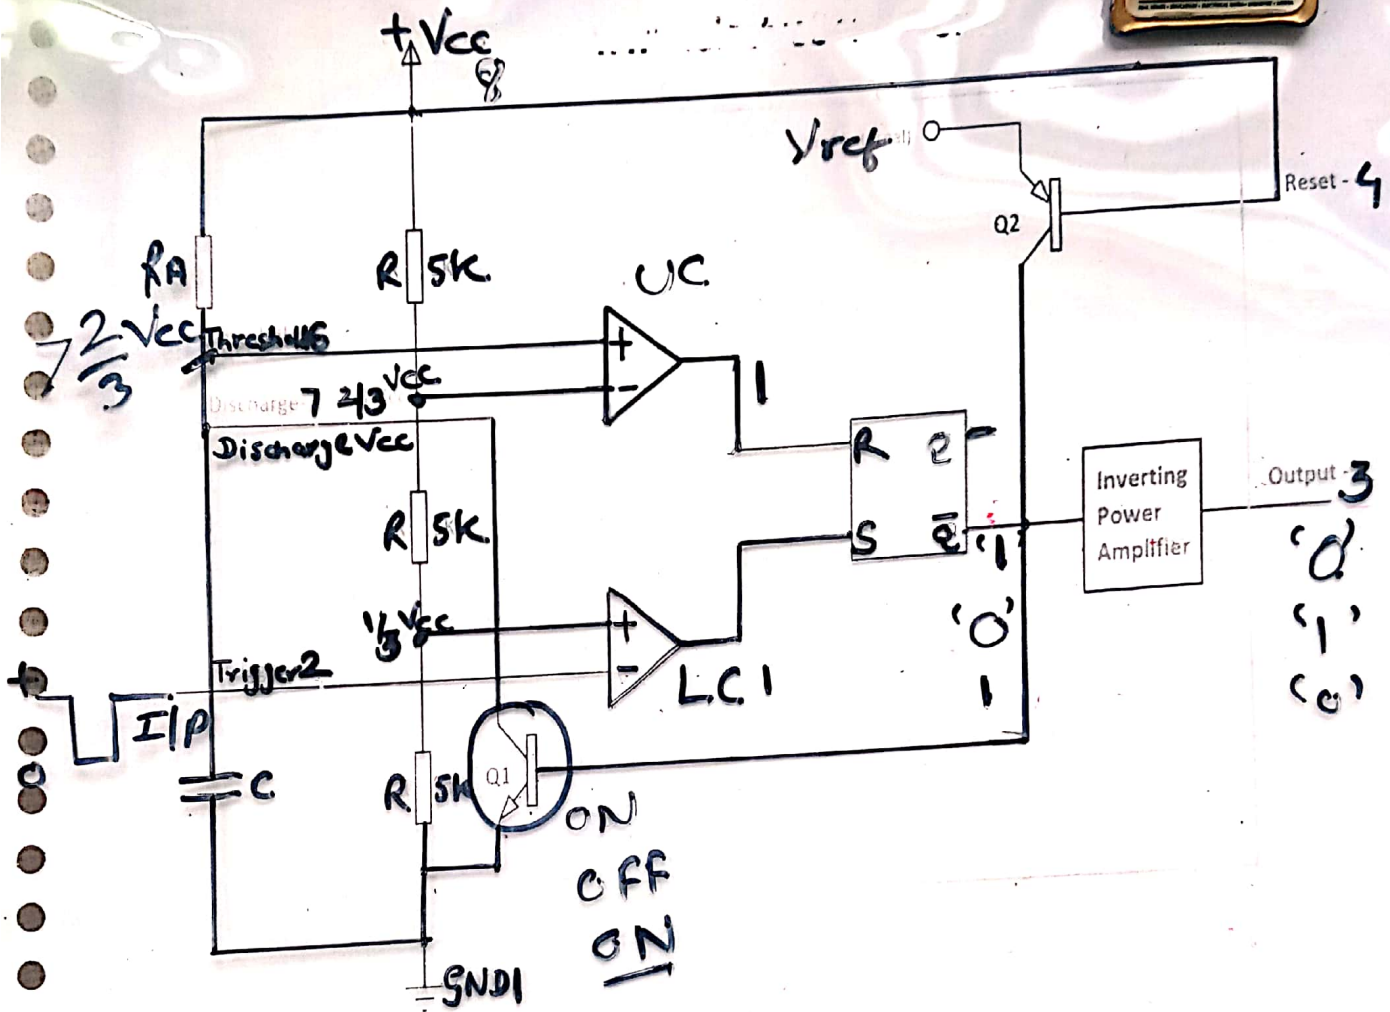 +Vcc
Vref
Reset - 4
Q2
RA
R 5K.
UC
2/3 Vcc
Threshold6
+
-
2/3 Vcc
Discharge 7
Discharge Vcc
1
R
S
Q̄
Inverting
Power
Amplifier
Output - 3
R 5K.
'1'
'0'
1/3 Vcc
+
-
'0'
'1'
Trigger2
L.C 1
1
'0'
+
I/P
0
C.
R. 5K
Q1
ON
OFF
ON
GND1